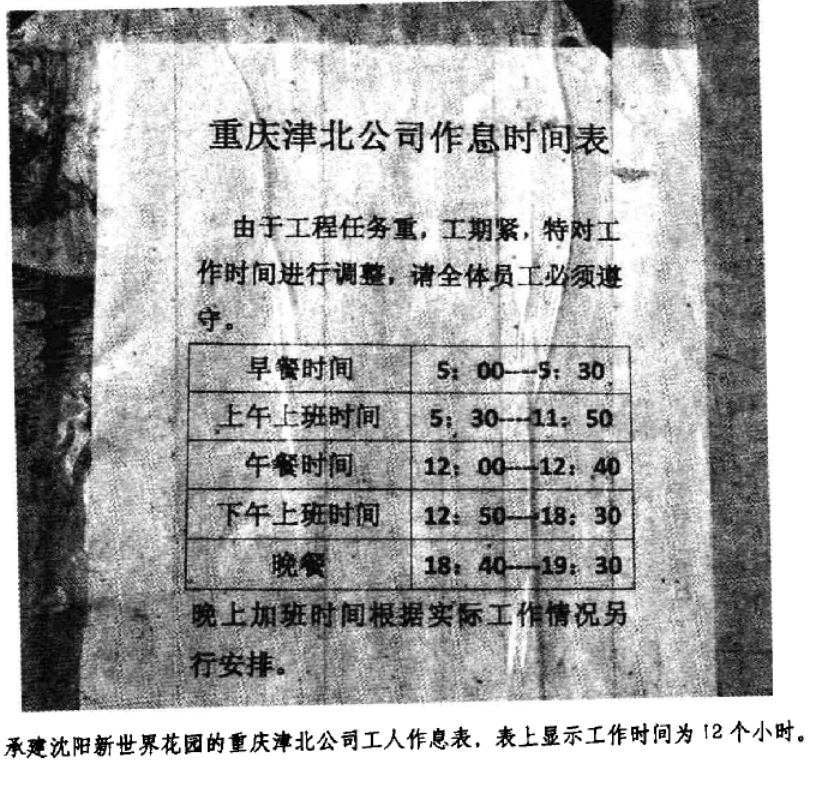 重庆津北公司作息时间表
由于工程任务重，工期紧，特对工
作时间进行调整，请全体员工必须遵
守。
早餐时间 5：00---5：30
上午上班时间 5：30---11：50
午餐时间 12：00---12：40
下午上班时间 12：50---18：30
晚餐 18：40---19：30
晚上加班时间根据实际工作情况另
行安排。
承建沈阳新世界花园的重庆津北公司工人作息表，表上显示工作时间为12个小时。